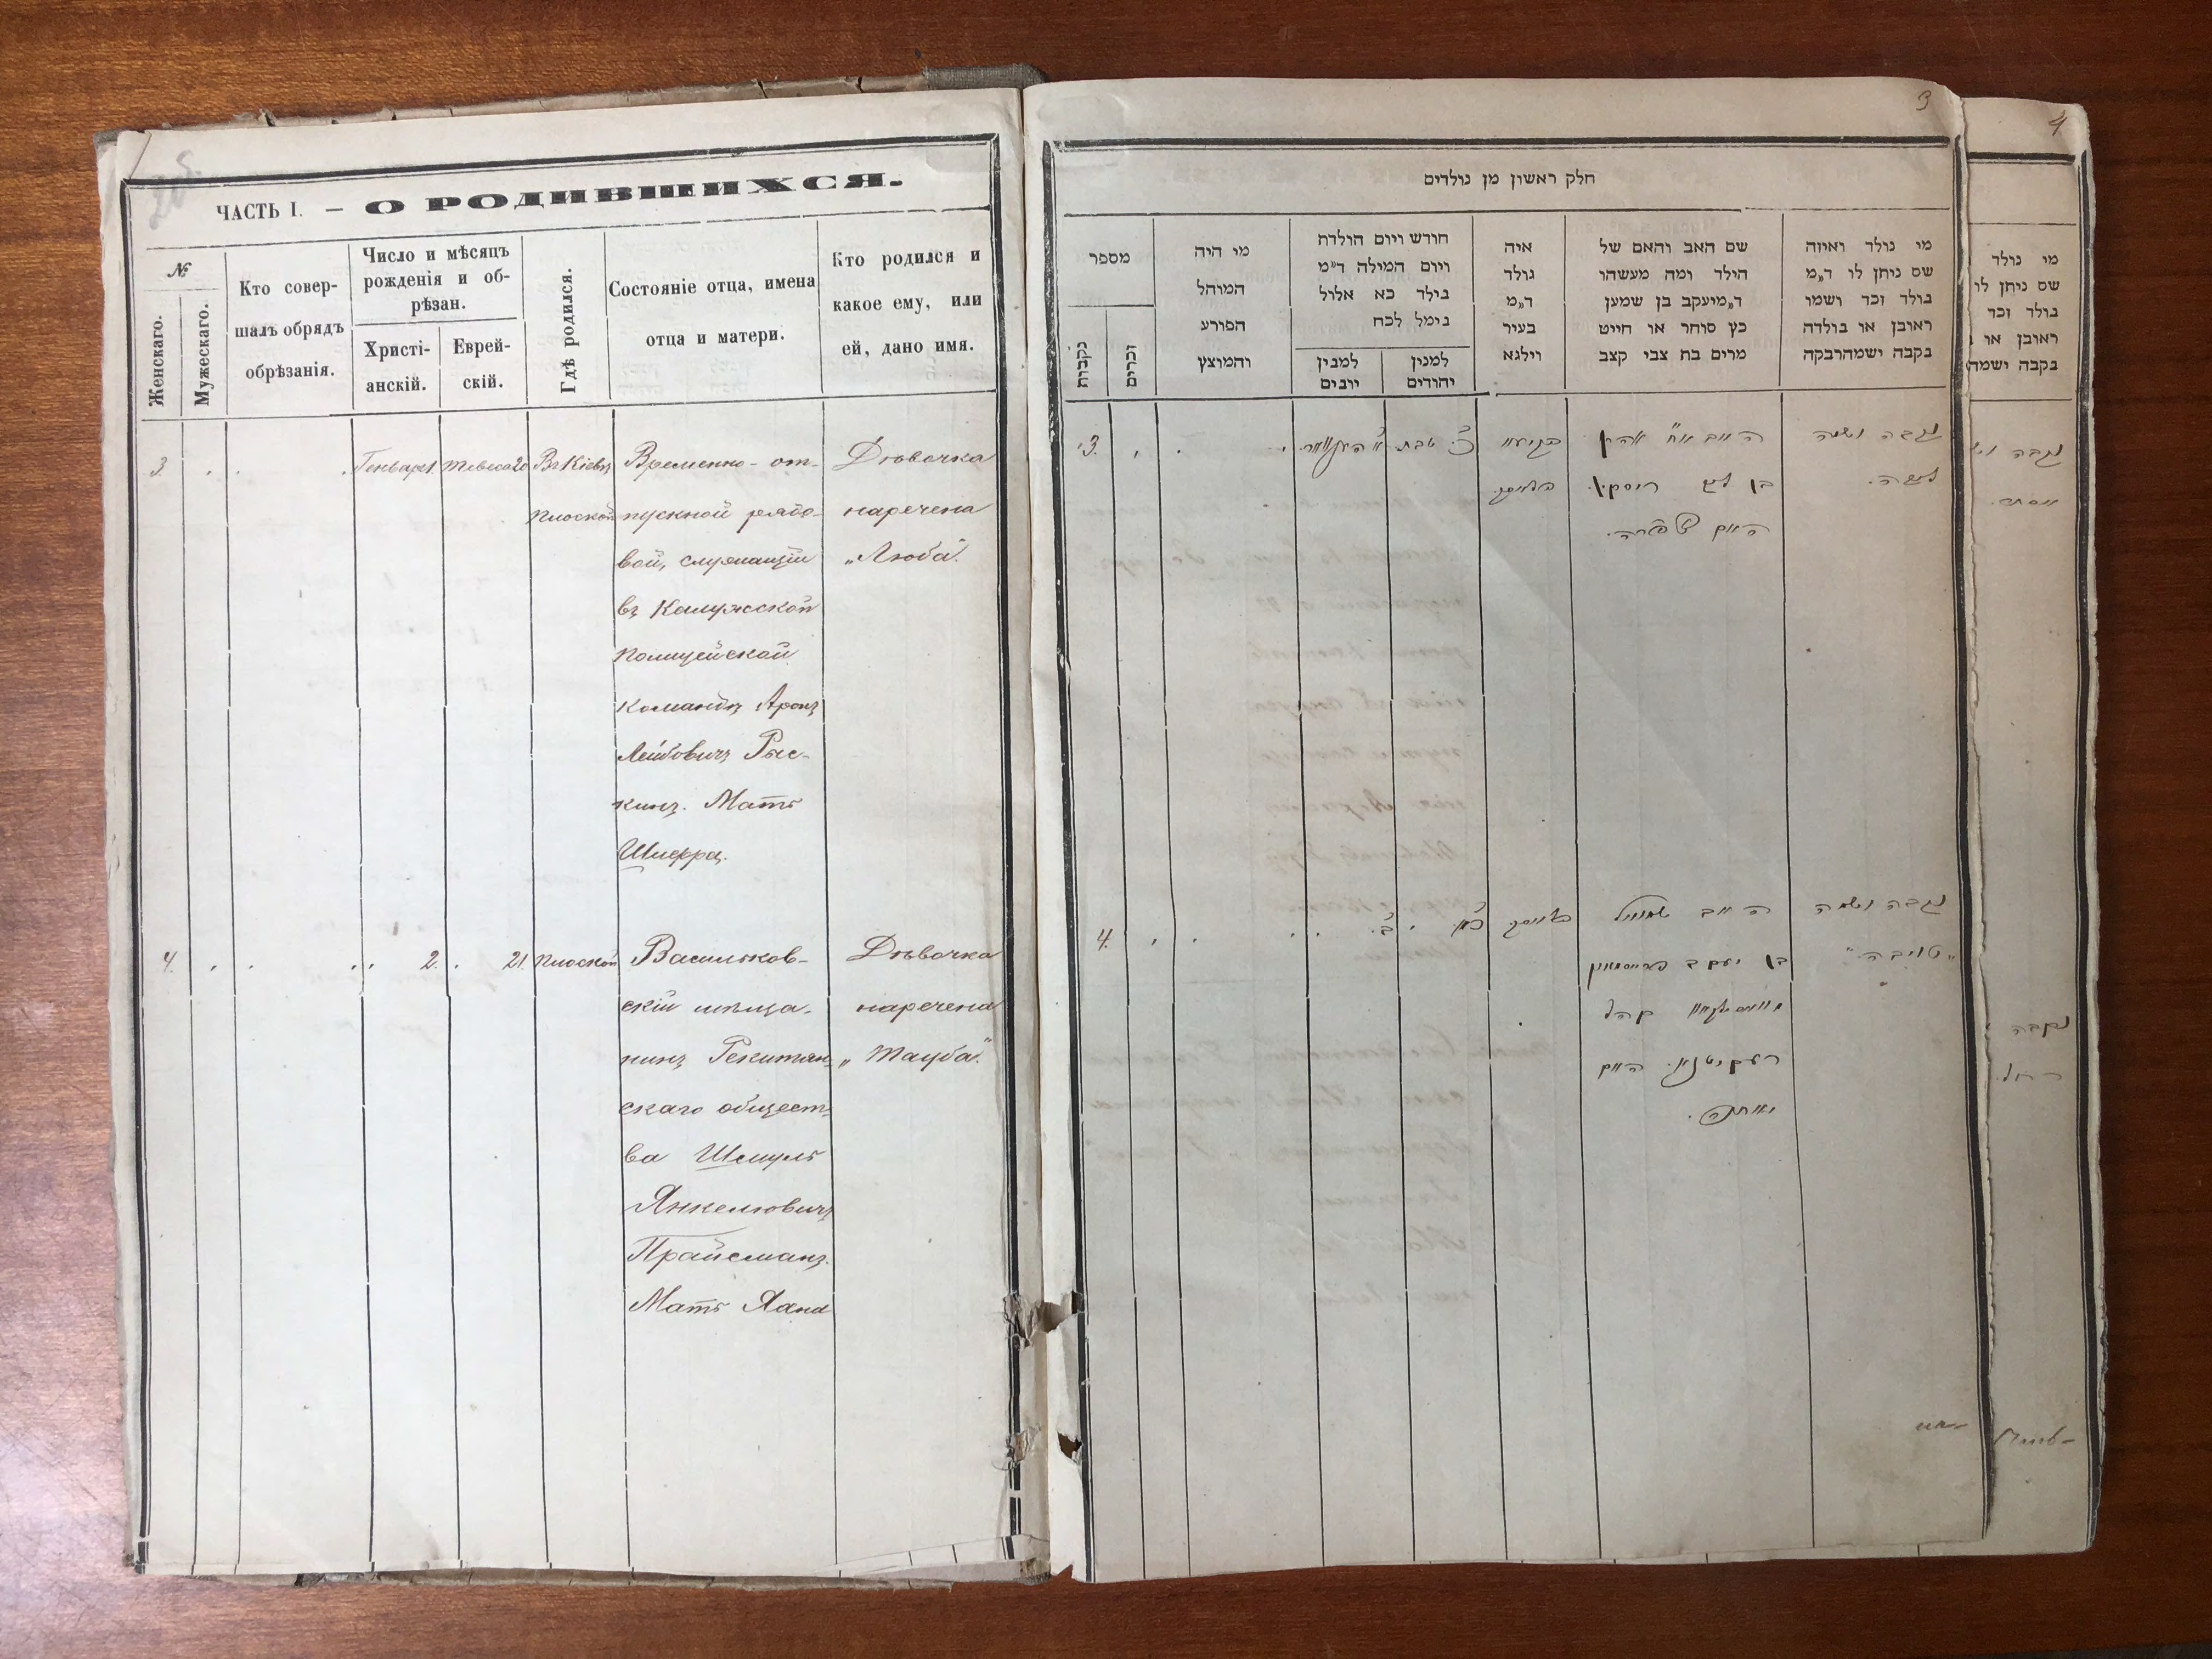 2об.
ЧАСТЬ I. — О РОДИВШИХСЯ.
№
Женскаго.
Мужескаго.
Кто совер-
шалъ обрядъ
обрѣзанія.
Число и мѣсяцъ
рожденія и об-
рѣзан.
Христі-
анскій.
Еврей-
скій.
Гдѣ родился.
Состояніе отца, имена
отца и матери.
Кто родился и
какое ему, или
ей, дано имя.
3.
Генваря 1
Тевеса 20
Въ Кіевѣ
Плоской
Временно-от-
пускной рядо-
вой, служащій
въ Калужской
Полицейской
Командѣ Аронъ
Лейбовичъ Рыс-
кинъ. Мать
Дѣвочка
наречена
„Люба“.
4.
2.
21.
Плоской
Васильков-
скій мѣща-
нинъ Рекитян-
скаго общест-
ва Шмуль
Янкелювичъ
Прайсманъ.
Мать
Дѣвочка
наречена
„Тауба“.
3
חלק ראשון מן נולדים
מספר
נקבות
זכרים
מי היה
המוהל
הפורע
והמוצץ
חודש ויום הולדת
ויום המילה ד״מ
בילד כא אלול
בימל לכח
למבין
יובים
למנין
יהודים
איה
נולד
ד״מ
בעיר
וילנא
שם האב והאם של
הילד ומה מעשהו
ד״מ יעקב בן שמען
כץ סוחר או חייט
מרים בת צבי קצב
מי נולד ואיזה
שם ניתן לו ד״מ
בולד זכר ושמו
ראובן או בולדה
בקבה ישמה רבקה
3.
כ׳ טבת
נקבה ושמה
4.
נקבה ושמה
„טויבה“
האב שמואל
בן יעקב פרייסמאן
קהל
האם
4
מי נולד
שס ניתן לו
בולד זכר
ראובן או
בקבה ישמה
נקבה
נקבה
רחל